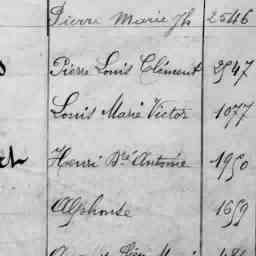 Pierre Marie Jh 2546
Pierre Louis Clément 2547
Louis Marie Victor 1077
Henri Bte Antoine 1950
Alphonse 1659